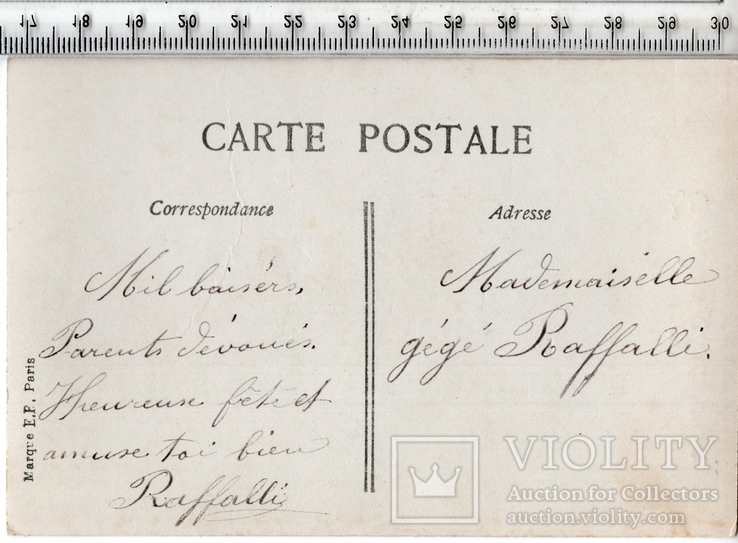 17 18 19 20 21 22 23 24 25 26 27 28 29 30
CARTE POSTALE
Correspondance
Mil baisérs,
Parents dévoués.
Heureuse fête et
amuse toi bien
Raffalli
Adresse
Mademaisélle
gégé Raffalli.
Marque E.P. Paris
VIOLITY
Auction for Collectors
auction.violity.com